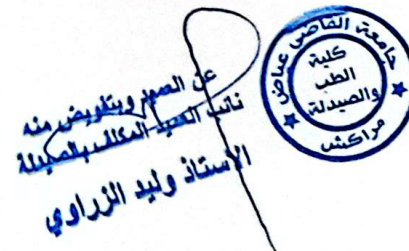 عن العميد وبتفويض منه
نائب العميد المكلف بالصيدلة
الأستاذ وليد الزراوي
جامعة القاضي عياض
كلية
الطب
والصيدلة
مراكش